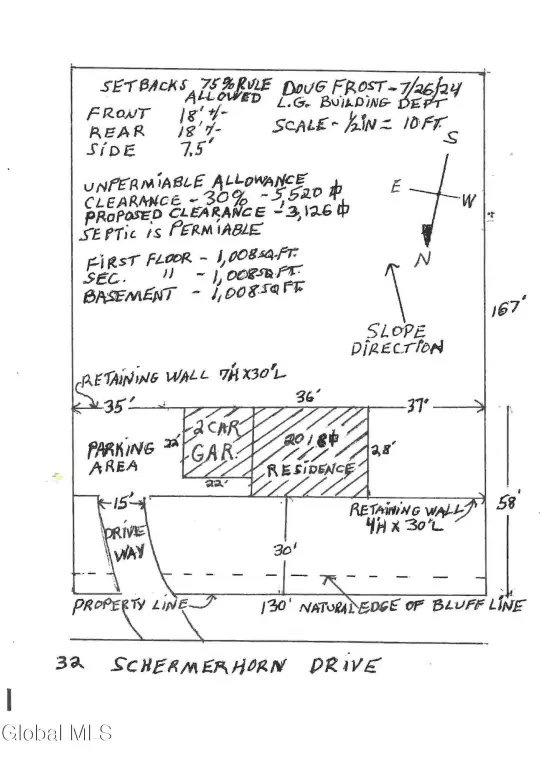 SETBACKS 75% RULE
ALLOWED
DOUG FROST - 7/26/24
L.G. BUILDING DEPT
FRONT 18' +/-
REAR 18' +/-
SIDE 7.5'
SCALE - 1/2 IN = 10 FT.
S
E
W
N
UNPERMIABLE ALLOWANCE
CLEARANCE - 30% - 5,520 ⏀
PROPOSED CLEARANCE - 3,126 ⏀
SEPTIC IS PERMIABLE
FIRST FLOOR - 1,008 SQ.FT.
SEC. " - 1,008 SQ FT.
BASEMENT - 1,008 SQ FT.
SLOPE
DIRECTION
167'
RETAINING WALL 7'H X 30'L
35'
36'
37'
PARKING
AREA
22'
2 CAR
GAR.
22'
RESIDENCE
28'
15'
DRIVE
WAY
RETAINING WALL
4'H X 30'L
58'
30'
PROPERTY LINE
130'
NATURAL EDGE OF BLUFF LINE
32 SCHERMERHORN DRIVE
Global MLS